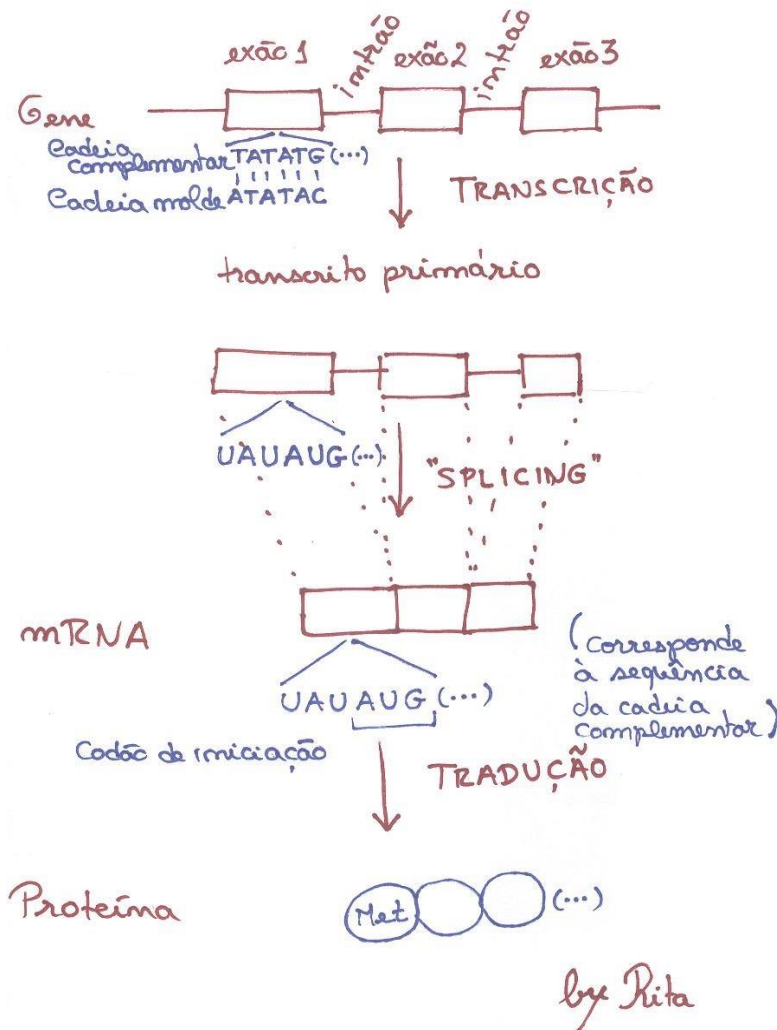 exão 1 intrão exão 2 intrão exão 3
Gene
Cadeia
complementar TATATG (...)
Cadeia molde ATATAC
TRANSCRIÇÃO
transcrito primário
UAUAUG (...)
"SPLICING"
mRNA
UAUAUG (...)
Codão de iniciação
(corresponde
à sequência
da cadeia
complementar)
TRADUÇÃO
Proteína
Met (...)
by Rita